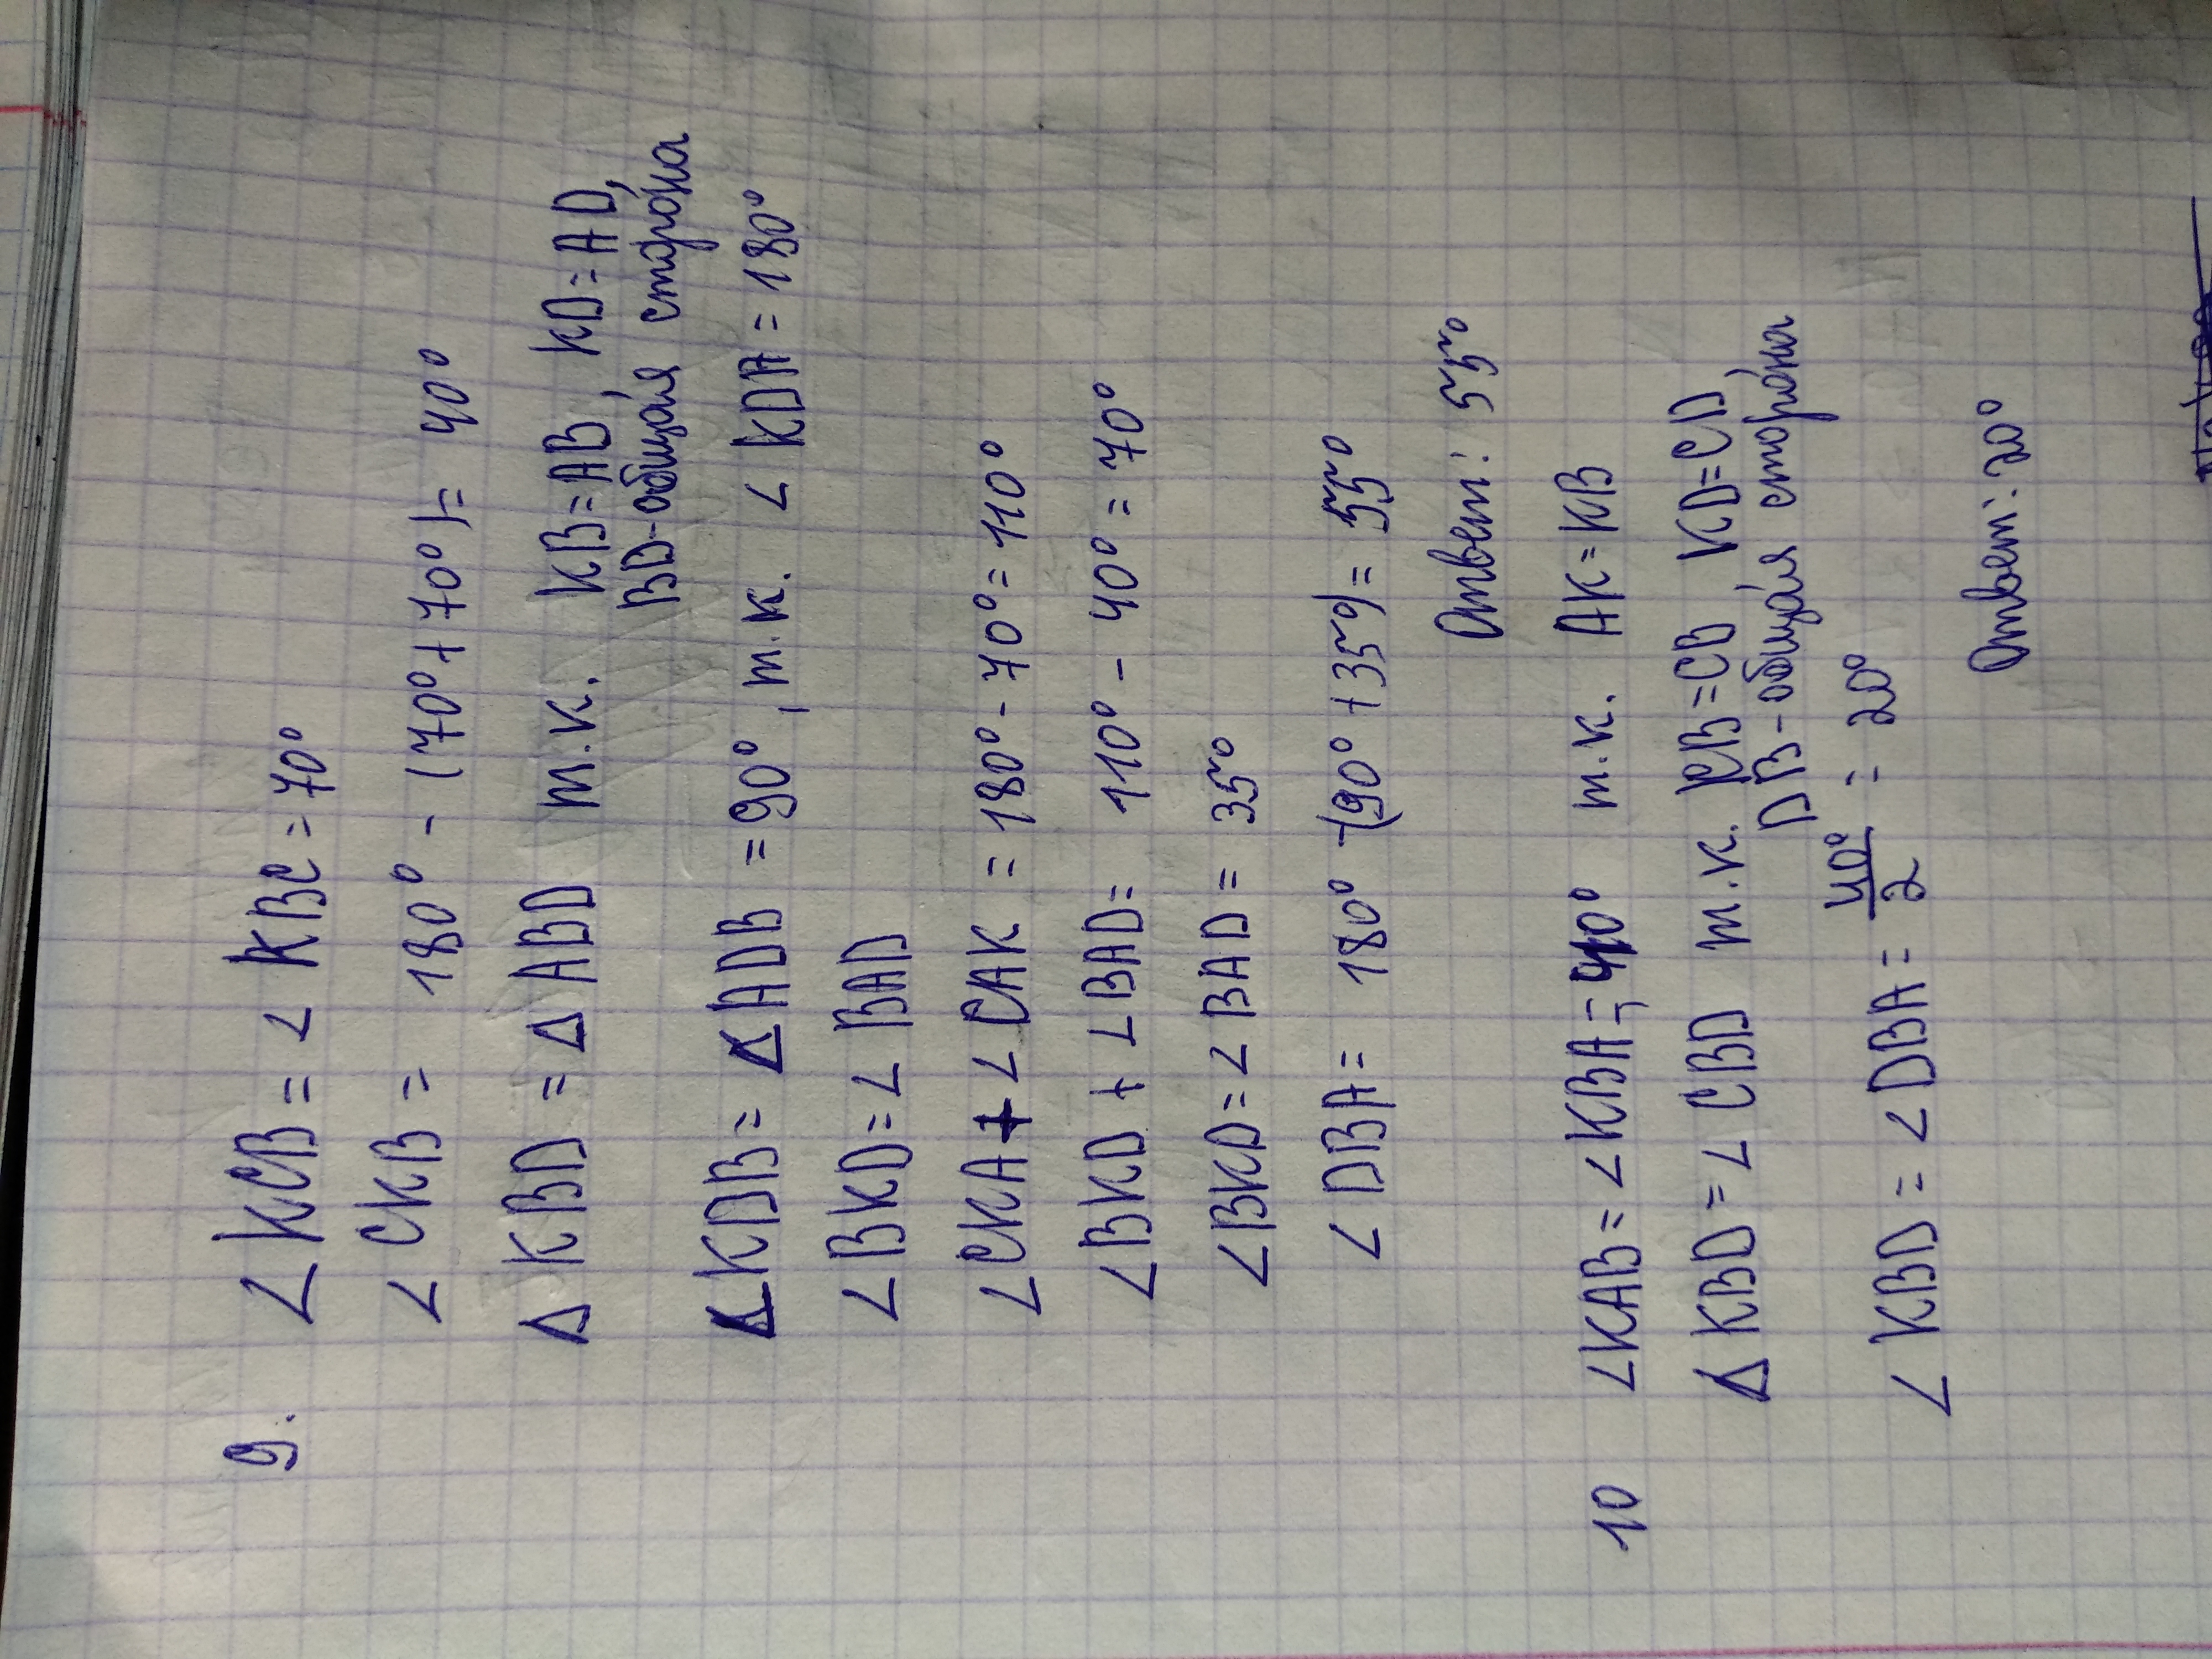 9. ∠KCB = ∠KBC = 70°
∠CKB = 180° - (70° + 70°) = 40°
Δ KBD = Δ ABD т.к. KB = AB, KD = AD,
BD - общая сторона
∠KDB = ∠ADB = 90°, т.к. ∠KDA = 180°
∠BKD = ∠BAD
∠CKA + ∠CAK = 180° - 70° = 110°
∠BKD + ∠BAD = 110° - 40° = 70°
∠BKD = ∠BAD = 35°
∠DBA = 180° - (90° + 35°) = 55°
Ответ: 55°
10 ∠KAB = ∠KBA = 40° т.к. AK = KB
Δ KBD = ∠CBD т.к. KB = CB, KD = CD,
DB - общая сторона
∠KBD = ∠DBA = 40°/2 = 20°
Ответ: 20°